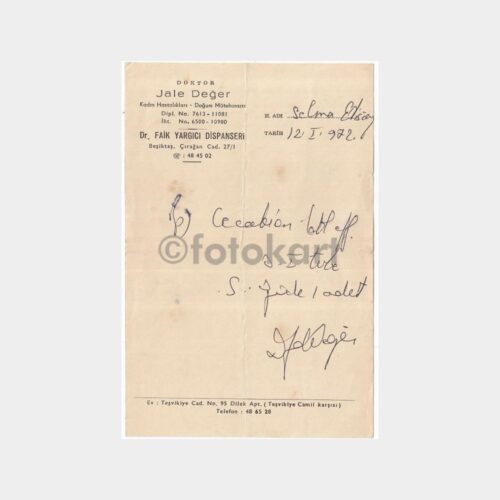 DOKTOR
Jale Değer
Kadın Hastalıkları - Doğum Mütehassısı
Dipl. No. 7613-11081
İht. No. 6500-10980
Dr. FAİK YARGICI DİSPANSERİ
Beşiktaş, Çırağan Cad. 27/1
☎ : 48 45 02
H. ADI Selma
TARİH 12 I. 972
R)
©fotokart
S. günde 1 adet
Ev : Teşvikiye Cad. No. 95 Dilek Apt. ( Teşvikiye Camii karşısı )
Telefon : 48 65 28